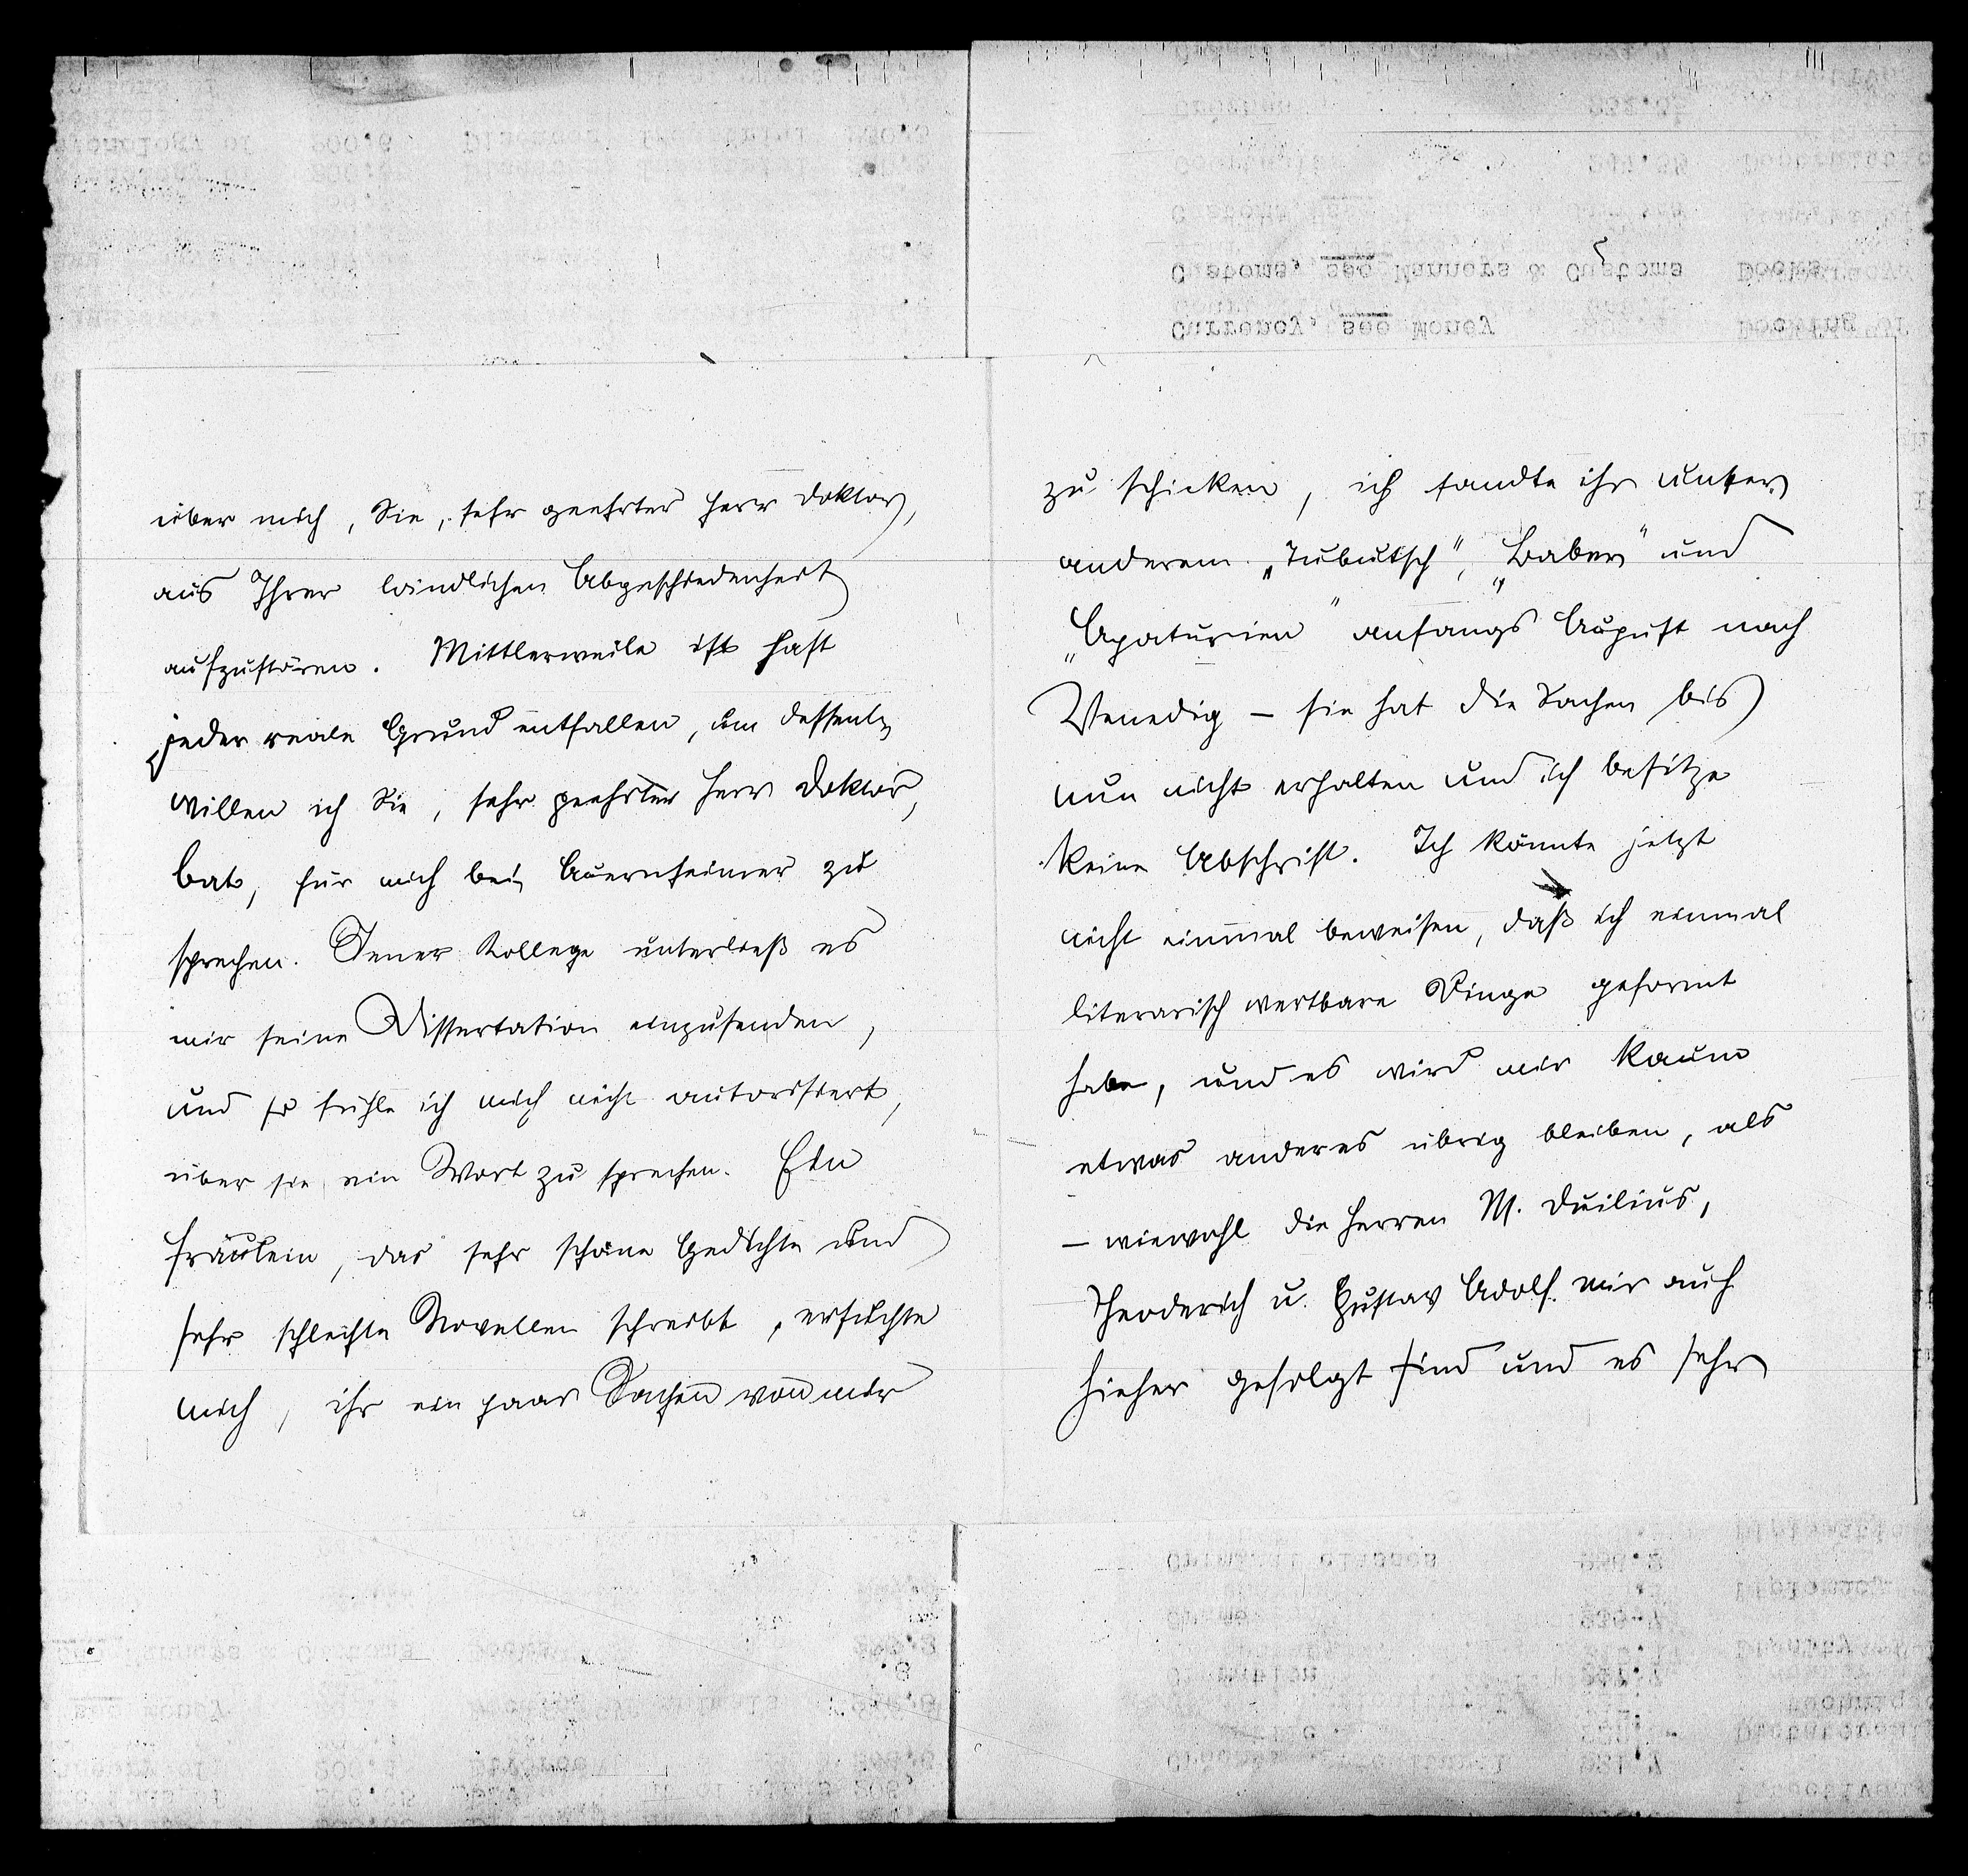 über mich, Sie, sehr geehrter Herr Doktor,
aus Ihrer ländlichen Abgeschiedenheit
aufzustören. Mittlerweile ist fast
jeder reale Grund entfallen, um dessent-
willen ich Sie, sehr geehrter Herr Doktor,
bat, für mich bei Auernheimer zu
sprechen. Jener Kollege unterließ es
mir seine Dissertation einzusenden,
und so fühle ich mich nicht autorisiert,
über sie ein Wort zu sprechen. Ein
Fräulein, das sehr schöne Gedichte und
sehr schlechte Novellen schreibt, ersuchte
mich, ihr ein paar Sachen von mir
zu schicken, ich sandte ihr unter
anderem „Tubutsch“, „Baber“ und
„Apaturien“ anfangs August nach
Venedig – sie hat die Sachen bis
nun nicht erhalten und ich besitze
keine Abschrift. Ich könnte jetzt
nicht einmal beweisen, daß ich einmal
literarisch wertbare Dinge geformt
habe, und es wird mir kaum
etwas anderes übrig bleiben, als
– wiewohl die Herren M. Duilius,
Theoderich u. Gustav Adolf mir auch
hieher gefolgt sind und es sehr
Customs, see Manners & Customs
Currency, see Money